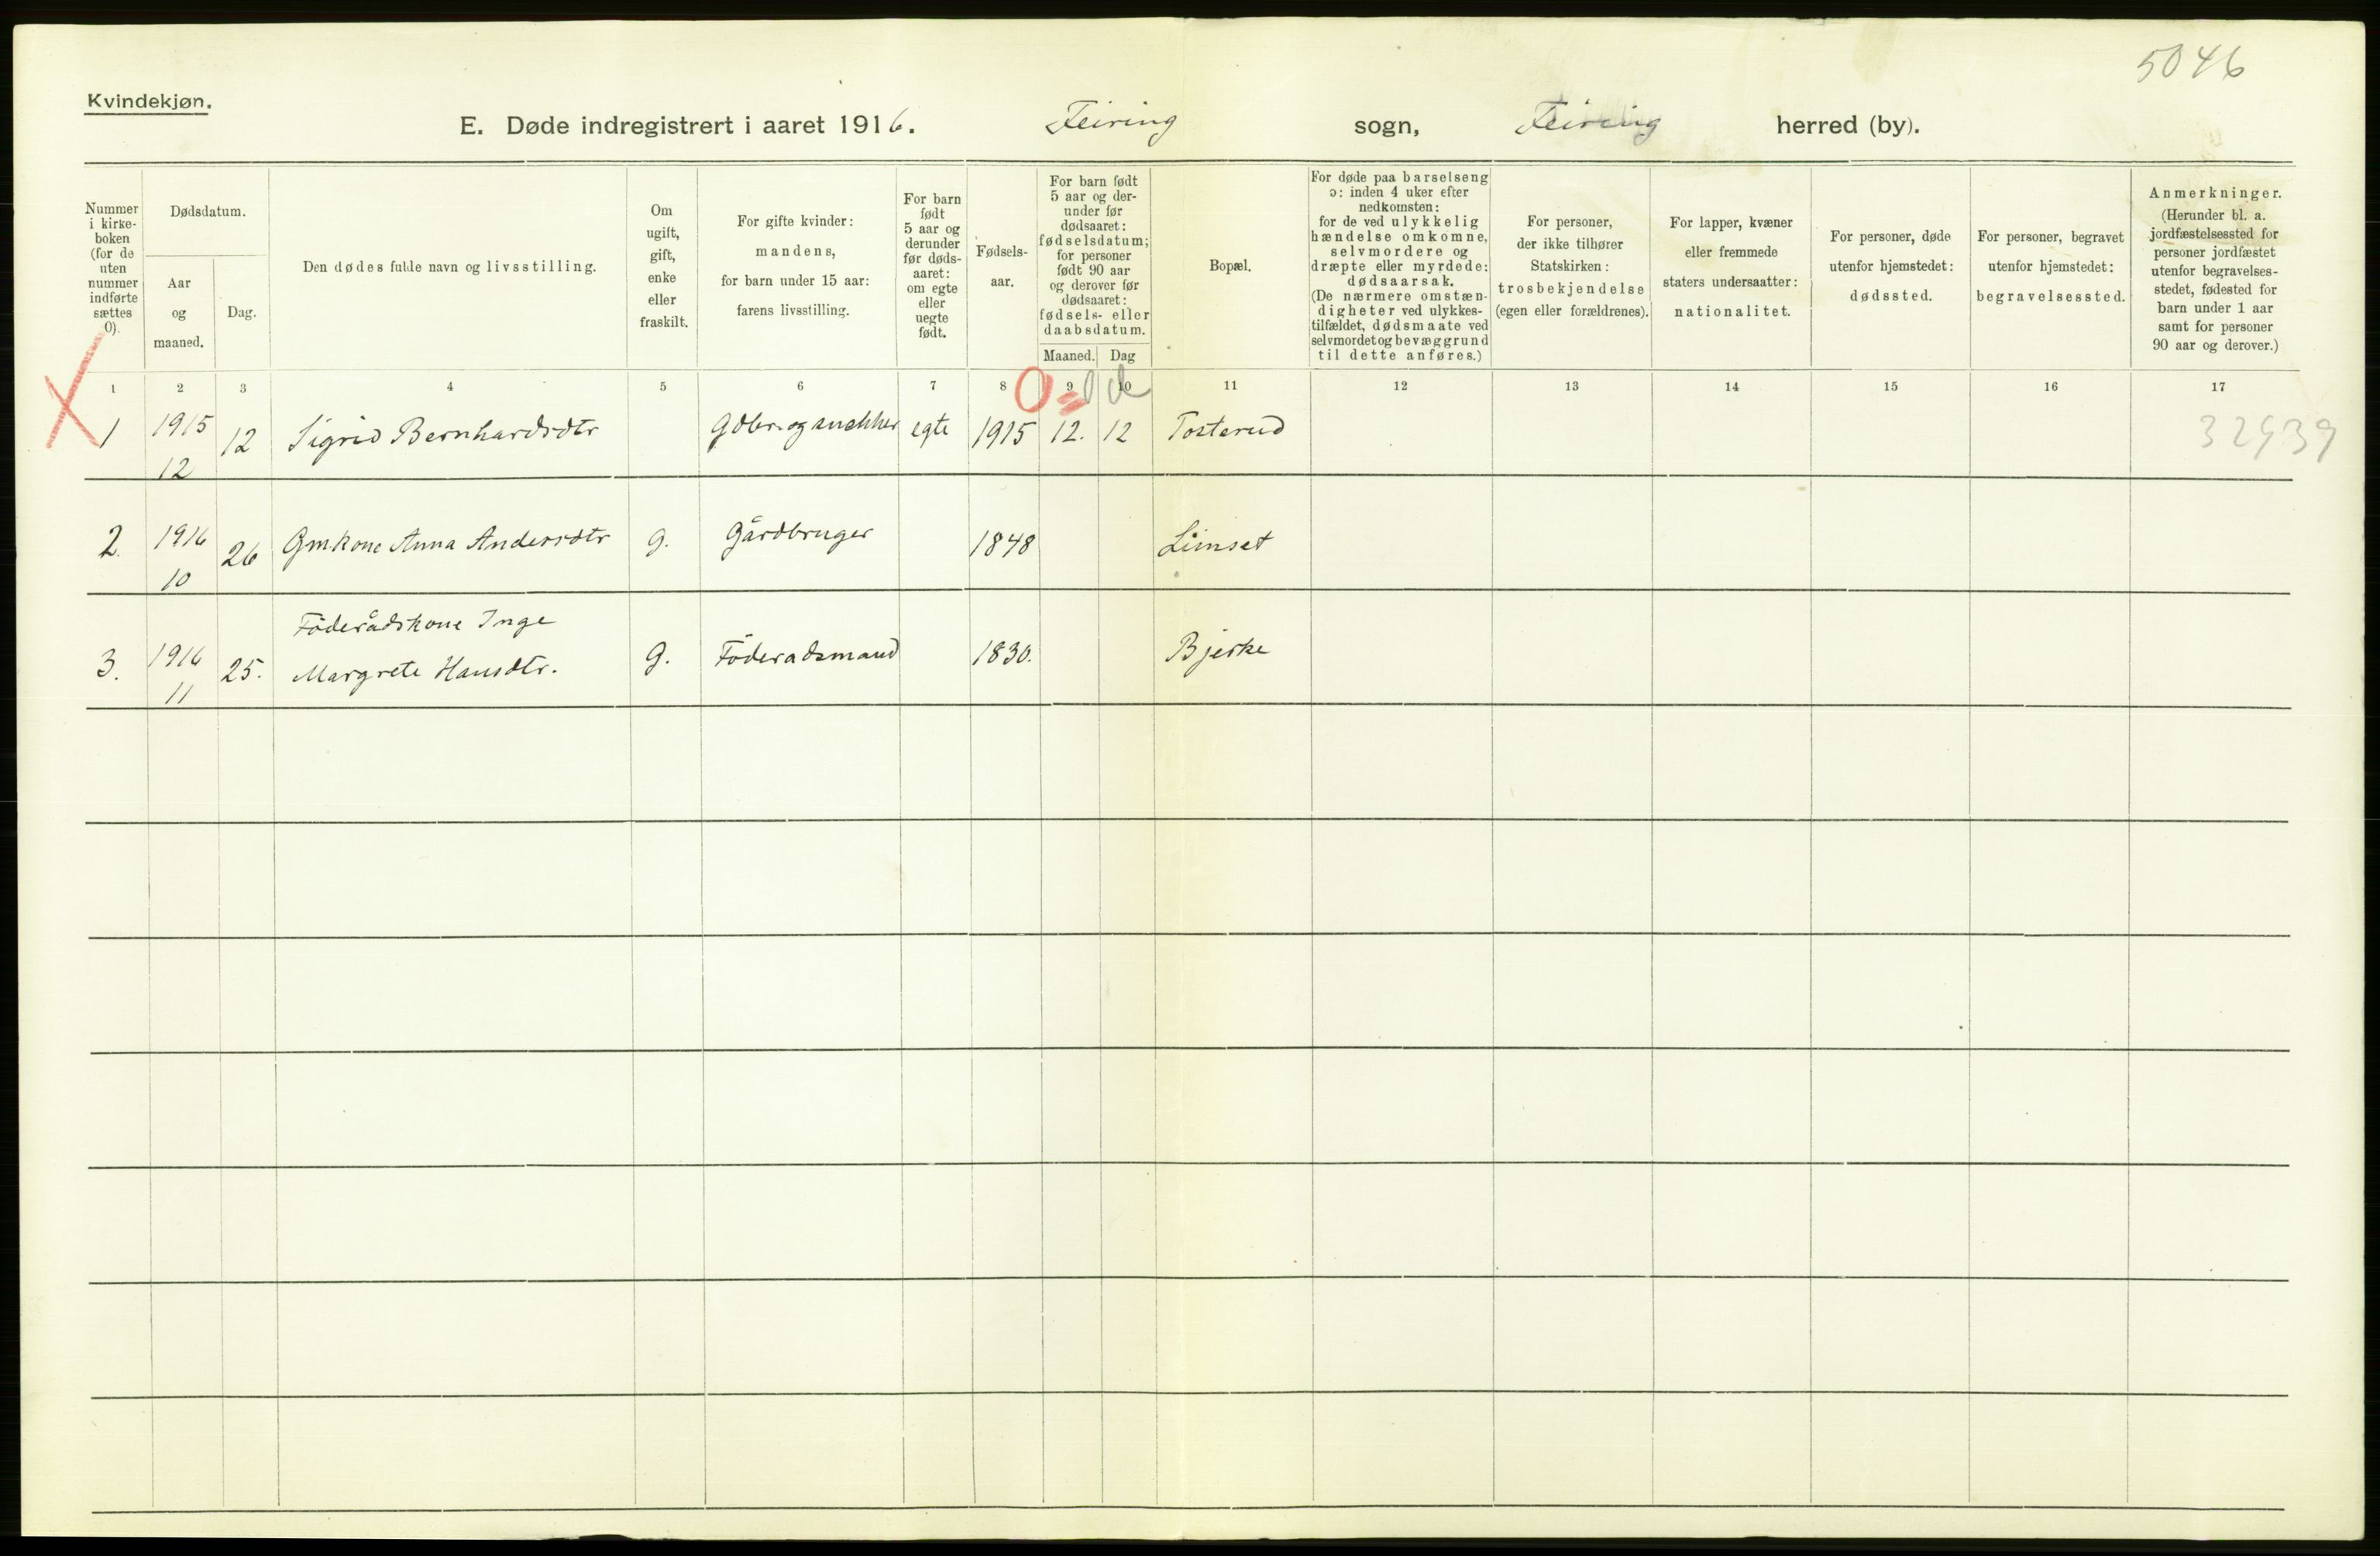 5046
Kvindekjøn.
E. Døde indregistrert i aaret 1916. Feiring sogn, Feiring herred (by).
Nummer i kirke- boken (for de uten nummer indførte sættes 0).
Dødsdatum.
Aar og maaned.
Dag.
Den dødes fulde navn og livsstilling.
Om ugift, gift, enke eller fraskilt.
For gifte kvinder: mandens, for barn under 15 aar: farens livsstilling.
For barn født 5 aar og derunder før døds- aaret: om egte eller uegte født.
Fødsels- aar.
For barn født 5 aar og der- under før dødsaaret: fødselsdatum; for personer født 90 aar og derover før dødsaaret: fødsels- eller daabsdatum.
Maaned. Dag
Bopæl.
For døde paa barselseng ɔ: inden 4 uker efter nedkomsten: for de ved ulykkelig hændelse omkomne, selvmordere og dræpte eller myrdede: dødsaarsak. (De nærmere omstæn- digheter ved ulykkes- tilfældet, dødsmaate ved selvmordet og bevæggrund til dette anføres.)
For personer, der ikke tilhører Statskirken: trosbekjendelse (egen eller forældrenes).
For lapper, kvæner eller fremmede staters undersaatter: nationalitet.
For personer, døde utenfor hjemstedet: dødssted.
For personer, begravet utenfor hjemstedet: begravelsessted.
Anmerkninger. (Herunder bl. a. jordfæstelsessted for personer jordfæstet utenfor begravelses- stedet, fødested for barn under 1 aar samt for personer 90 aar og derover.)
1 2 3 4 5 6 7 8 9 10 11 12 13 14 15 16 17
1 1915 12 12 Sigrid Bernhardsdtr Gdbr. og snekker egte 1915 12. 12 Tosterud 32939
2. 1916 10 26 Gmkone Anna Andersdtr g. Gårdbruger 1848 Limset
3. 1916 11 25. Föderådskone Inge
Margrete Hansdtr. g. Föderadsmand 1830. Bjerke